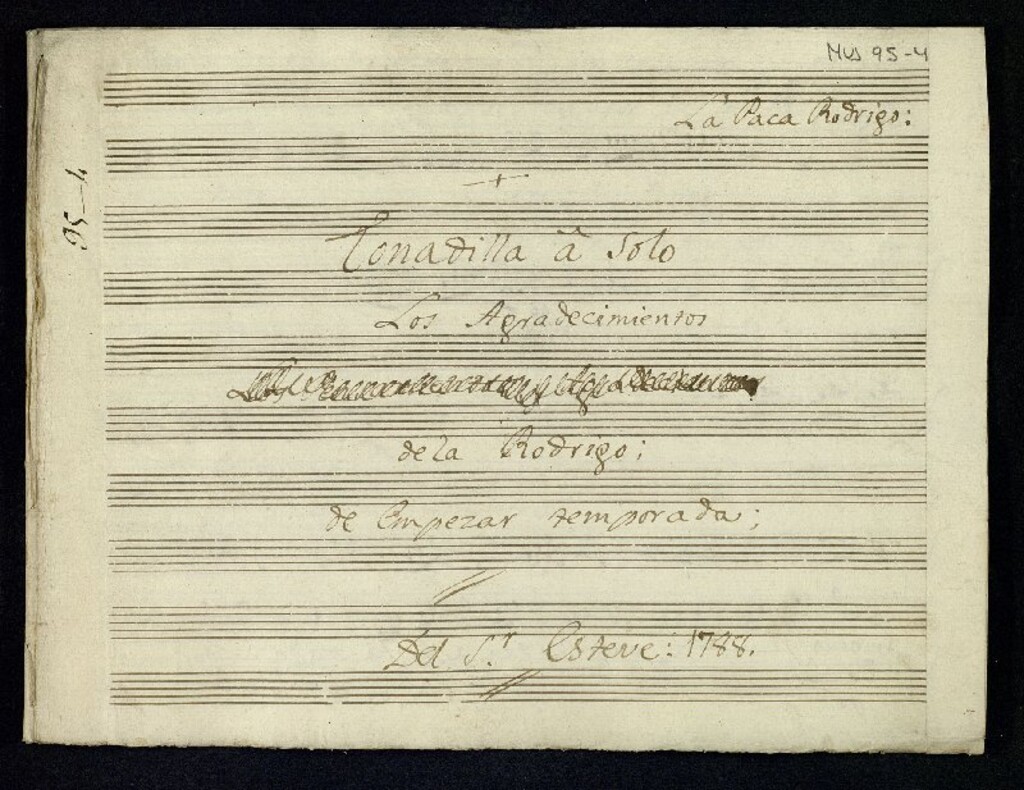 Mus 95-4
La Paca Rodrigo:
95-4
Tonadilla â Solo
Los Agradecimientos
de la Rodrigo;
de Empezar temporada;
Del S.r Esteve: 1788.